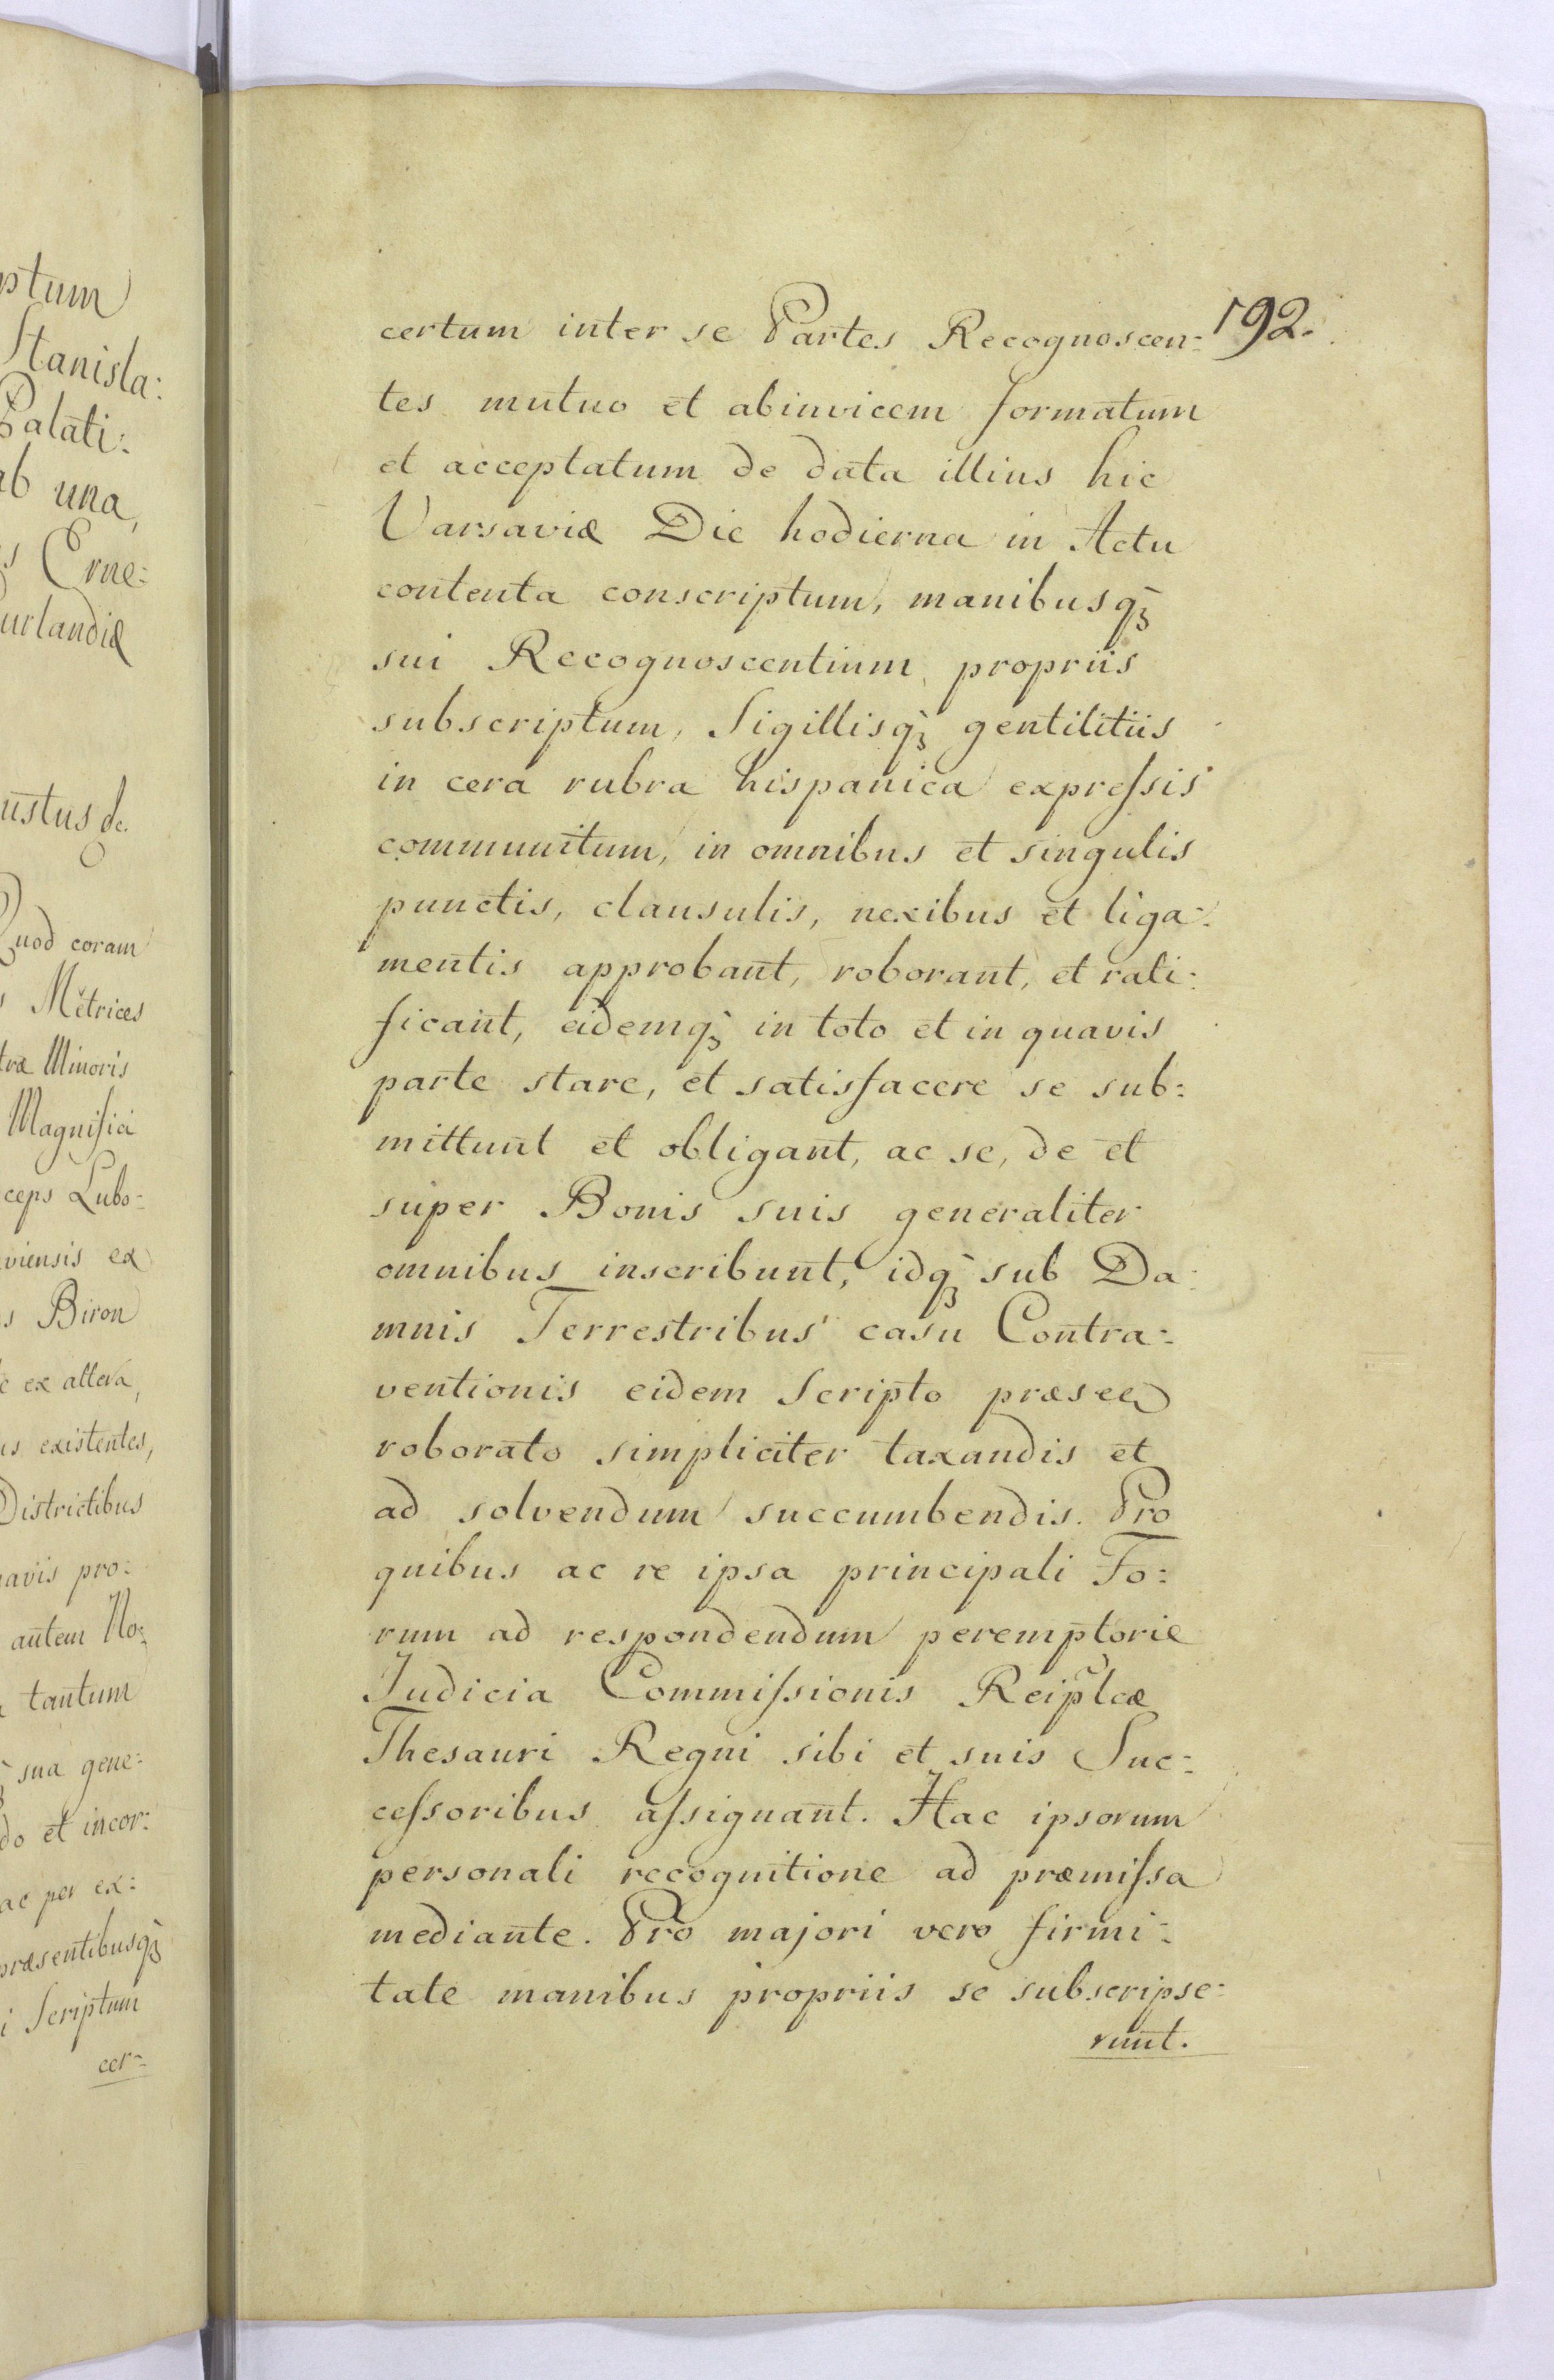 ptum
Stanisla:
Palati:
ab una,
s Erne:
urlandiæ
ustus &c.
Quod coram
s Mĕtrices
træ Minoris
Magnifici
ceps Lubo-
viensis ex
s Biron
c ex altera,
us existentes,
Districtibus
uavis pro:
autem No:
a tantum
sua gene:
do et incor:
ac per ex:
præsentibusq̀ꝫ
i Scriptum
cer-
192.
certum inter se Partes Recognoscen:
tes mutuo et abinvicem formatum
et acceptatum de data illius hic
Varsaviæ Die hodierna in Actu
contenta conscriptum, manibusq̀ꝫ
sui Recognoscentium propriis
subscriptum, Sigillisq̀ꝫ gentilitiis
in cera rubra hispanica expreſsis
communitum, in omnibus et singulis
punctis, clausulis, nexibus et liga:
mentis approbant, roborant, et rati:
ficant, eidemq̀ꝫ in toto et in quavis
parte stare, et satisfacere se sub:
mittunt et obligant, ac se, de et
super Bonis suis generaliter
omnibus inscribunt, idq̀ꝫ sub Da:
mnis Terrestribus casu Contra:
ventionis eidem Scripto
roborato simpliciter taxandis et
ad solvendum succumbendis. Pro
quibus ac re ipsa principali Fo:
rum ad respondendum peremptorie
Judicia Commiſsionis Reiplcæ
Thesauri Regni sibi et suis Suc:
ceſsoribus aſsignant. Hac ipsorum
personali recognitione ad præmiſsa
mediante. Pro majori vero firmi:
tate manibus propriis se subscripse:
runt.